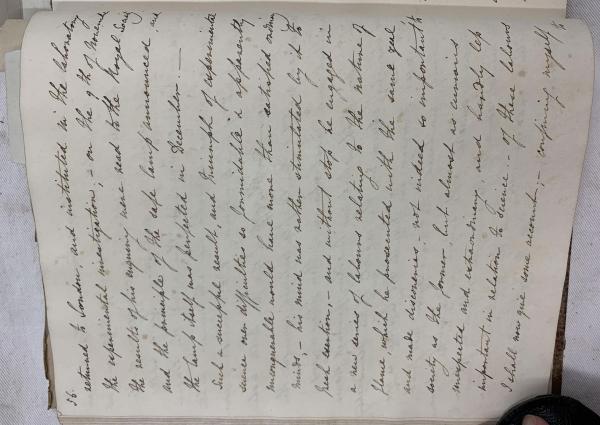 56.
returned to London, and instituted in the laboratory
the experimental investigation; - on the 9th of Novemb.
the results of his inquiry were read to the Royal Society
and the principle of the safe lamp announced, and
the lamp itself was perfected in December. —
Such a successful result, and triumph of experimental
science over difficulties so formidable & apparently
unconquerable would have more than satisfied ordinary
minds; - his mind was rather stimulated by it to
fresh exertion; - and without stop he engaged in
a new series of labours relating to the nature of
flame, which he prosecuted with the same zeal
and made discoveries - not indeed so important to
society as the former, but almost as curious
unexpected and extraordinary and hardly less
important in relation to Science. - Of these labours
I shall now give some account; - confining myself to